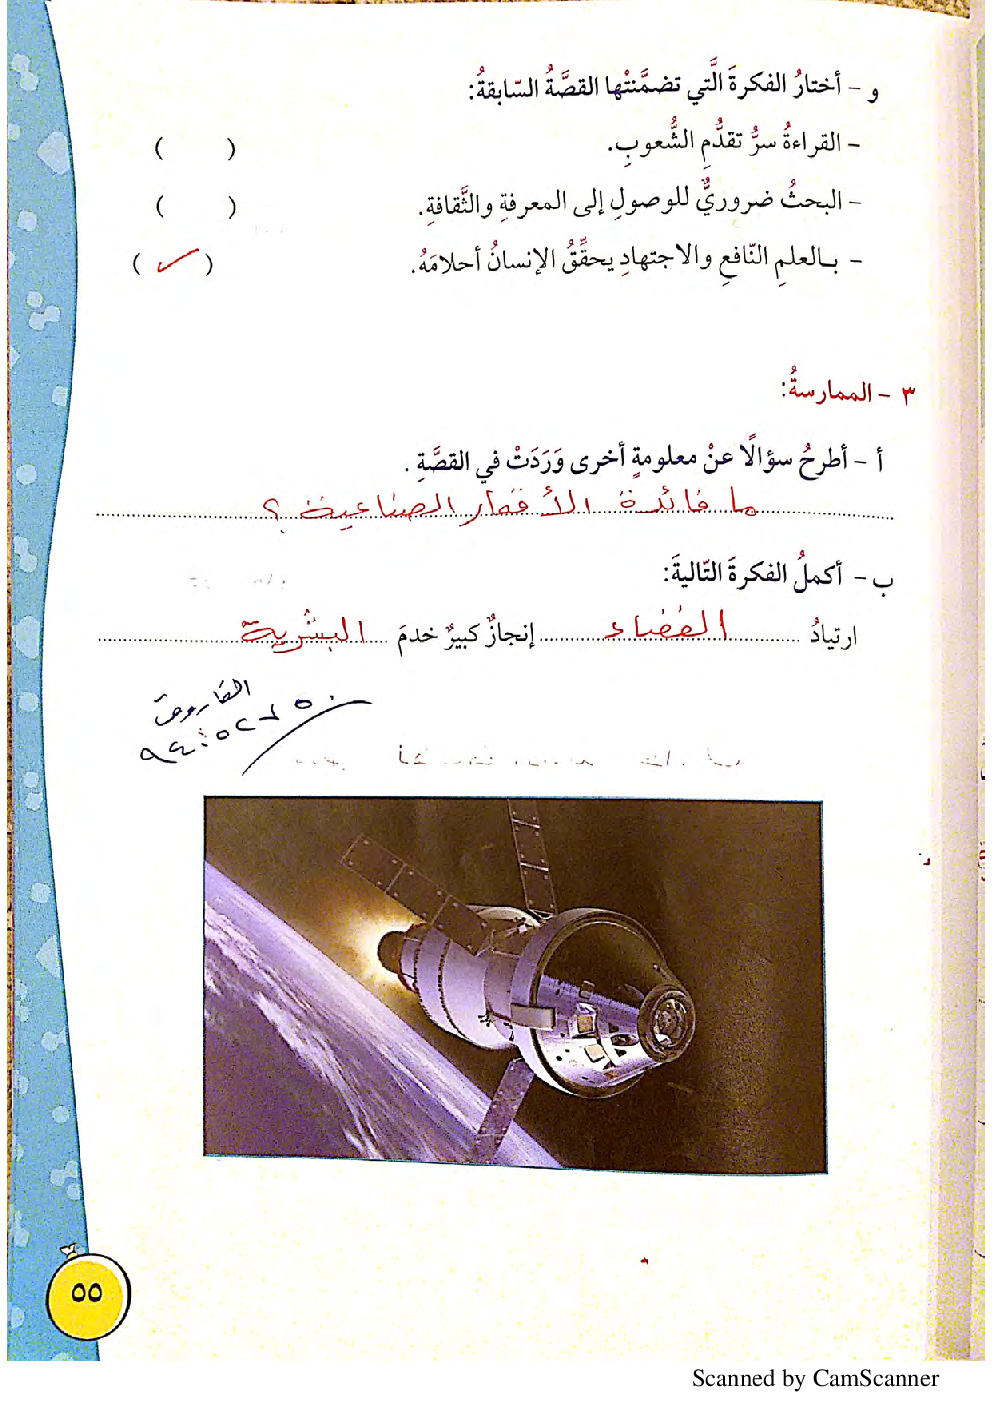 و - أختارُ الفكرةَ الَّتي تضمَّنتْها القصَّةُ السّابقةُ:
- القراءةُ سرُّ تقدُّمِ الشُّعوبِ. ( )
- البحثُ ضروريٌّ للوصولِ إلى المعرفةِ والثَّقافةِ. ( )
- بالعلمِ النّافعِ والاجتهادِ يحقِّقُ الإنسانُ أحلامَهُ. (✓)
٣ - الممارسةُ:
أ - أطرحُ سؤالًا عنْ معلومةٍ أخرى وَرَدَتْ في القصَّةِ .
ما فائدة الأقمار الصناعية ؟
ب - أكملُ الفكرةَ التّاليةَ:
ارتيادُ الفضاء إنجازٌ كبيرٌ خدمَ البشرية
الفاروق
٥٥
Scanned by CamScanner